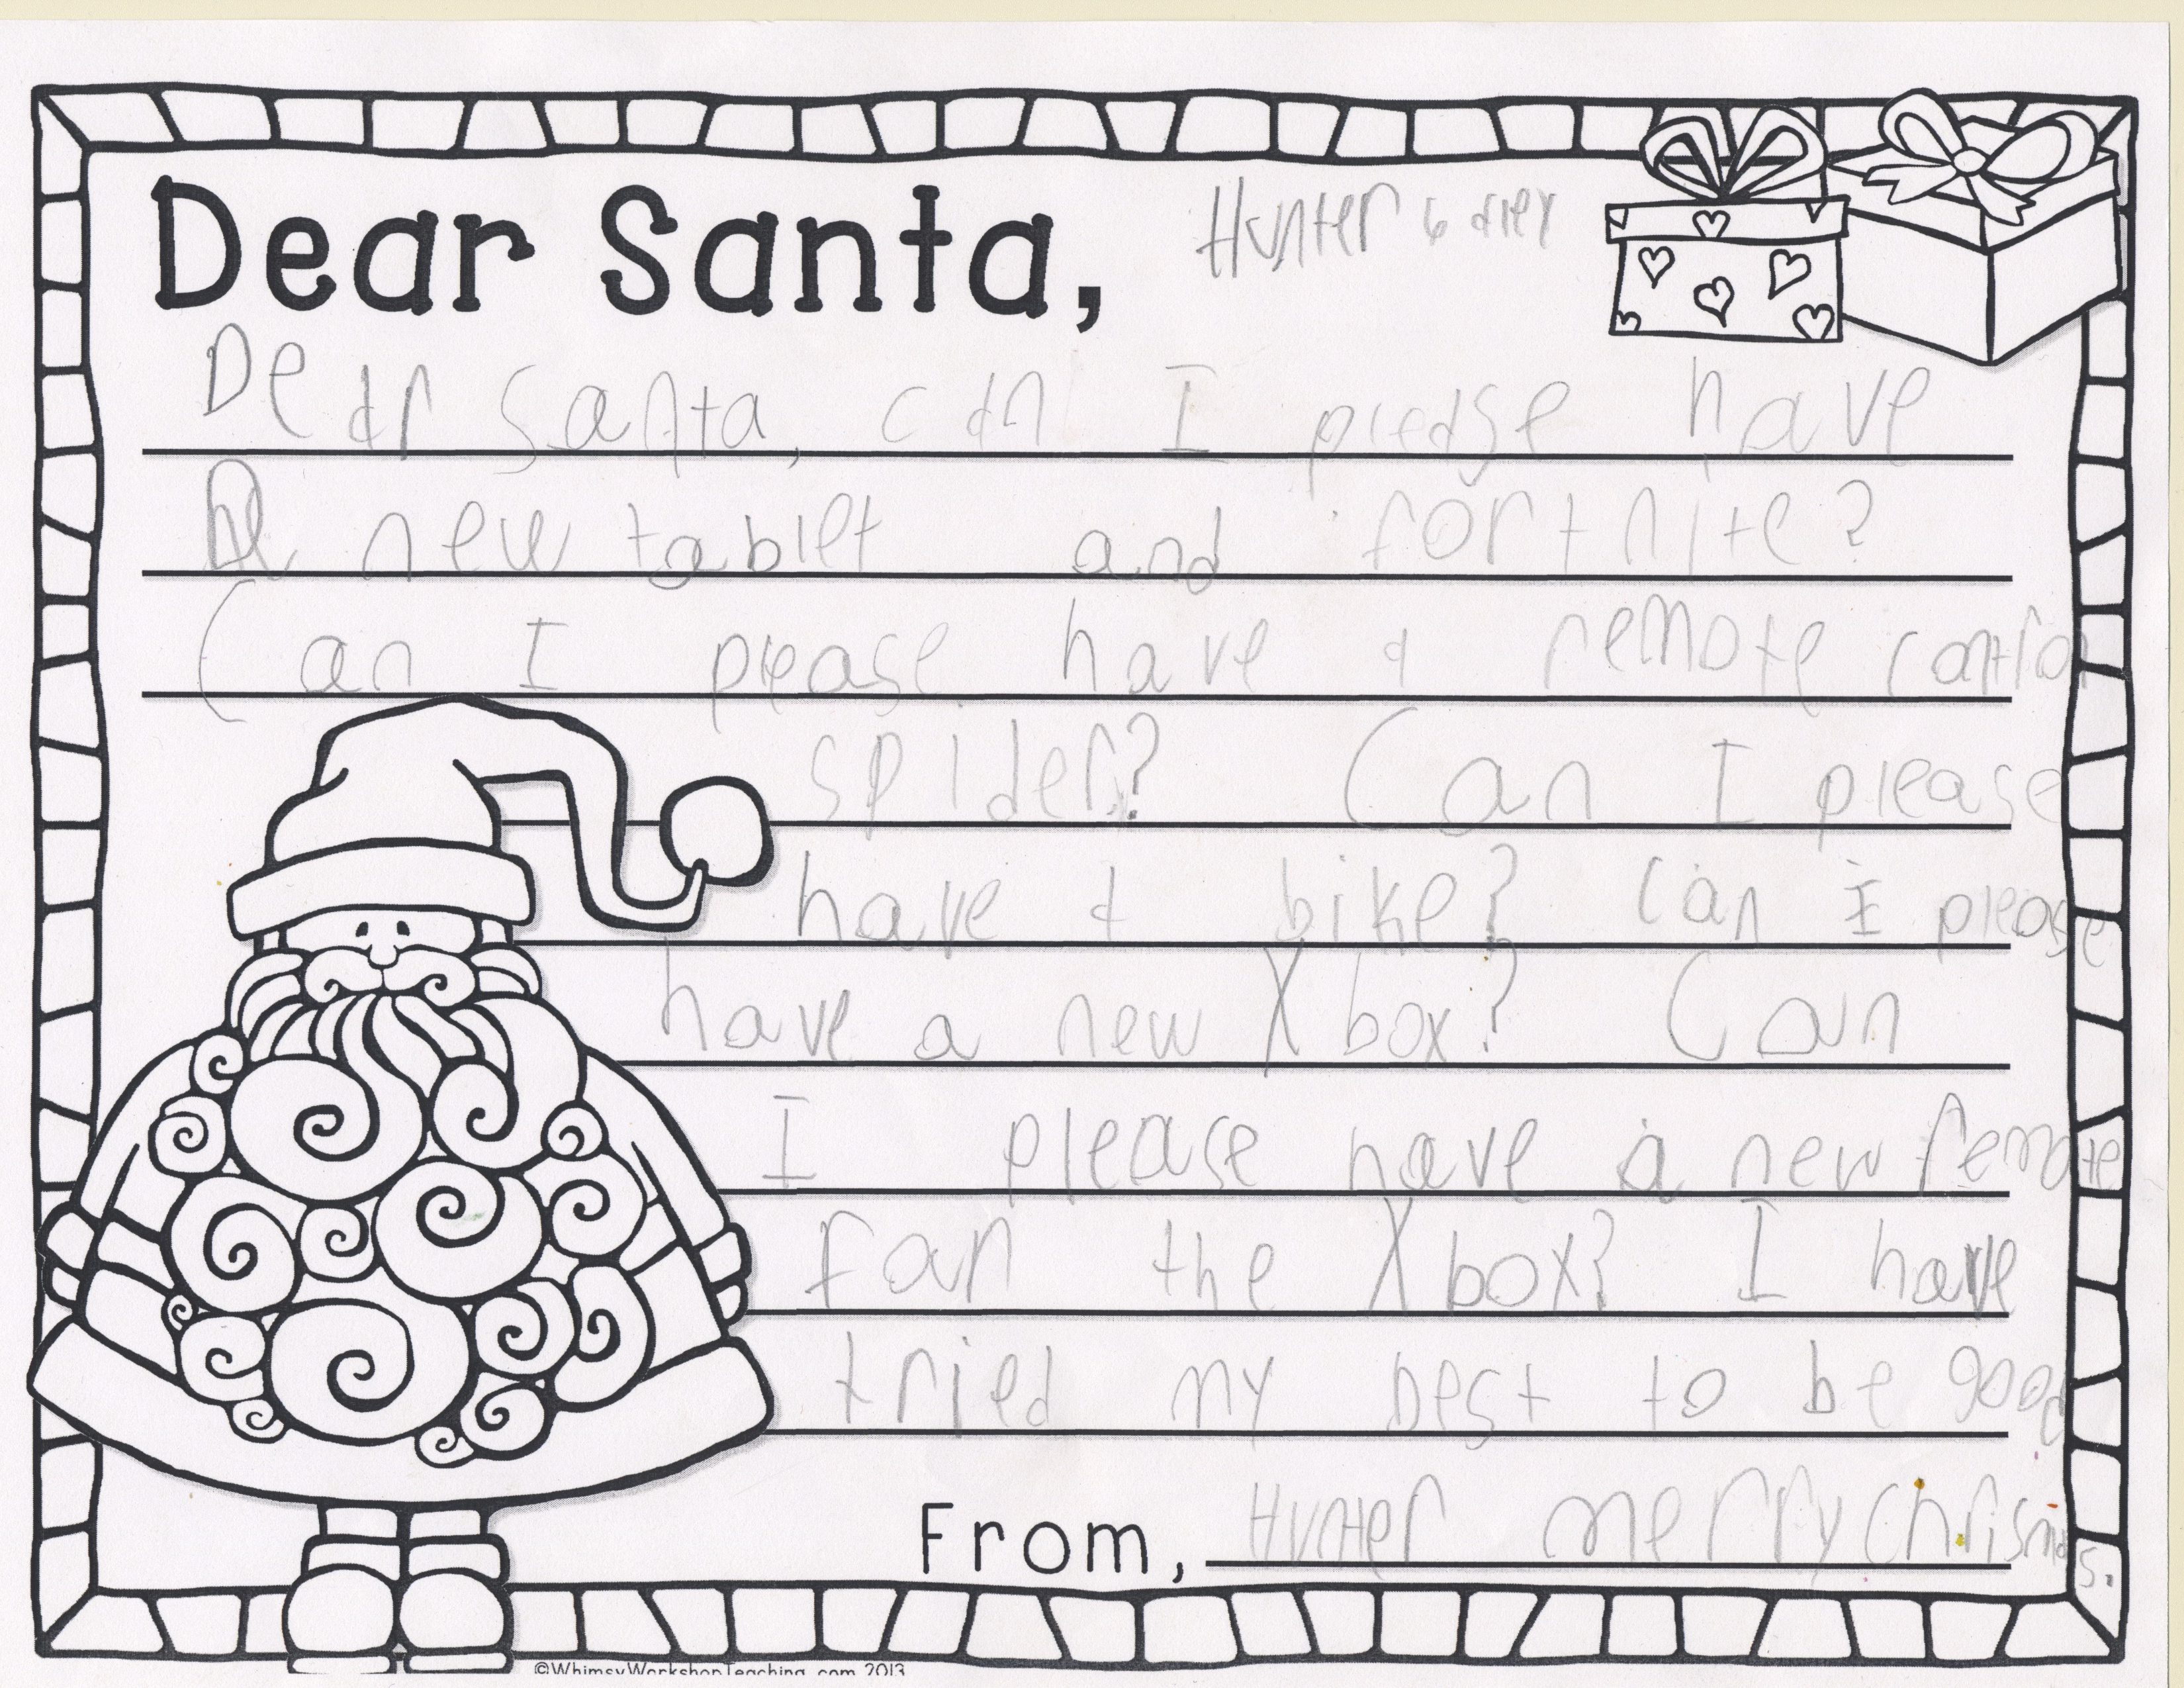 Dear Santa, Hunter
Dear Santa, can I please have
a new tablet and fortnite?
Can I please have a remote contro
spider? Can I please
have a bike? Can I please
have a new Xbox? Can
I please have a new remote
for the Xbox? I have
tried my best to be good
From, Hunter merry chrismas.
©WhimsyWorkshopTeaching.com 2013